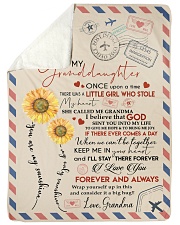 MY
Granddaughter
ONCE upon a time
THERE WAS A LITTLE GIRL WHO STOLE
My heart
SHE CALLED ME GRANDMA
I believe that GOD
SENT YOU INTO MY LIFE
TO GIVE ME HOPE & TO BRING ME JOY
IF THERE EVER COMES A DAY
When we can't be together
KEEP ME IN your heart
and I'LL STAY THERE FOREVER
I Love You
FOREVER AND ALWAYS
Wrap yourself up in this
and consider it a big hug!
Love, Grandma
you are my sunshine
my only sunshine